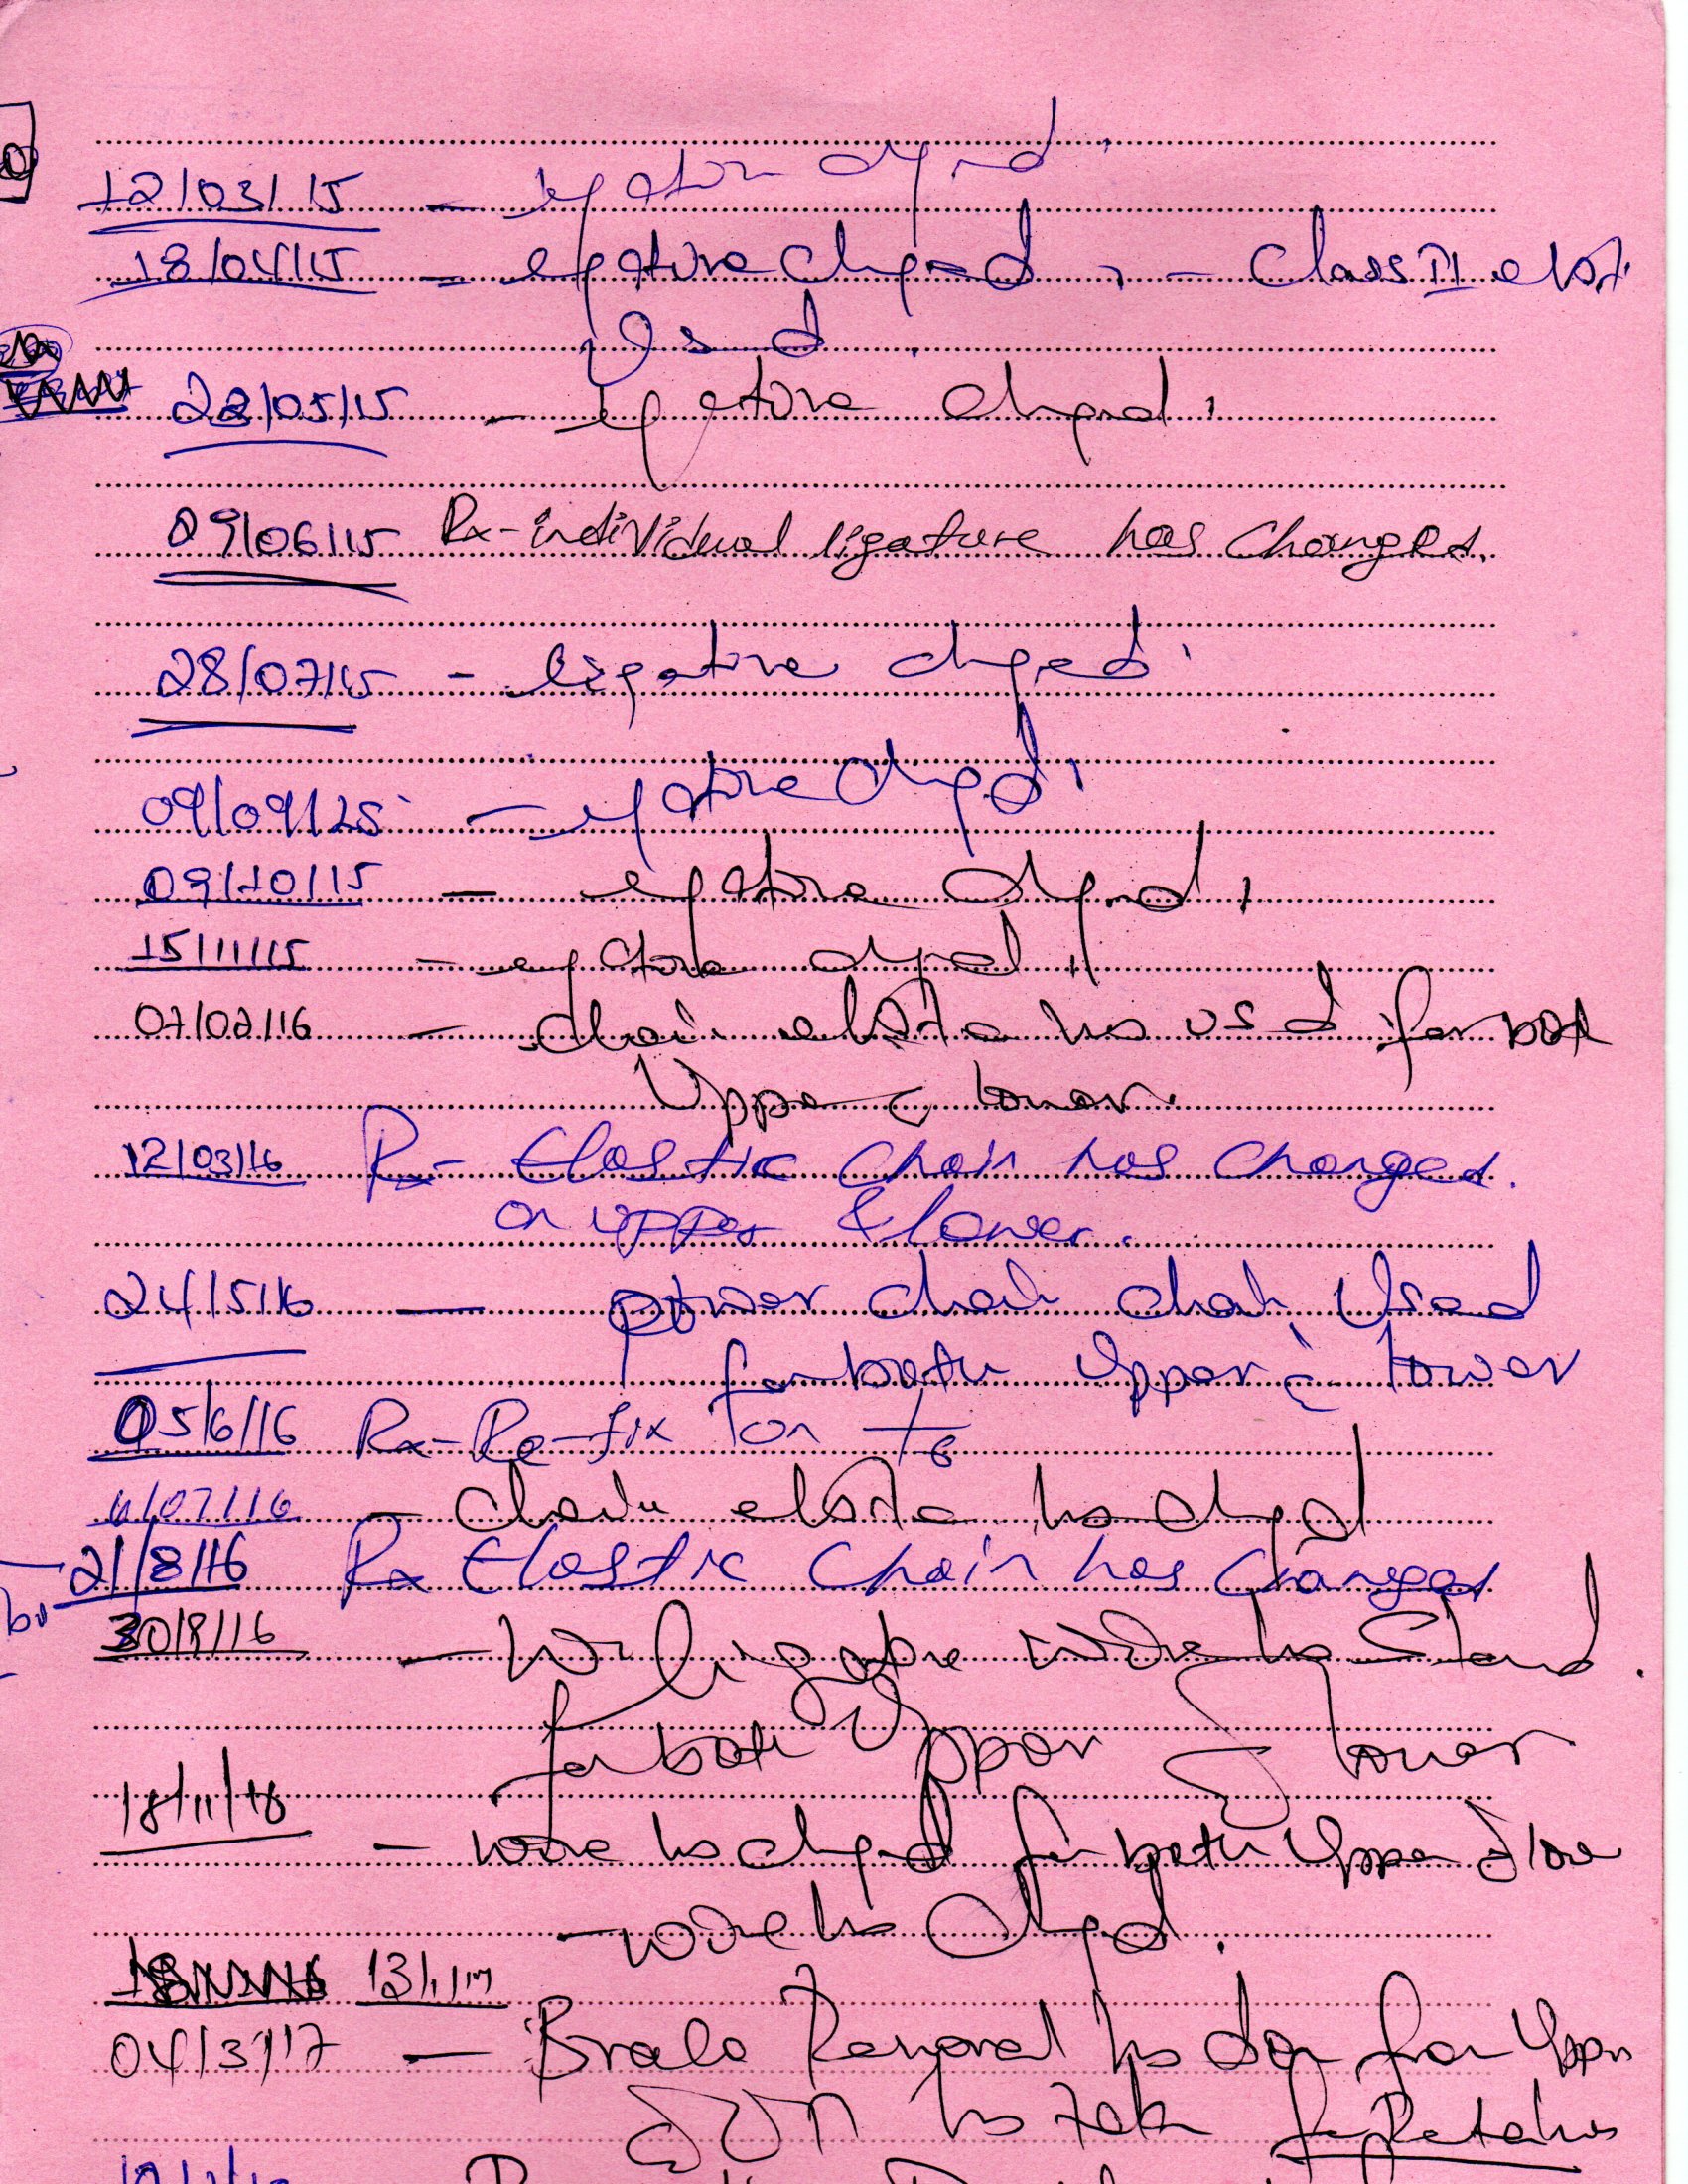 12/03/15 - ligature changed.
18/04/15 - ligature changed, - Class II elast.
Used.
22/05/15 - ligature changed.
09/06/15 Rx-individual ligature has changed.
28/07/15 - ligative chged.
09/09/15 - ligature chged.
09/10/15 - ligature chged.
15/11/15 - ligature chged.
07/02/16 - chain elastic has used for both
Upper & lower.
12/03/16 Rx- Elastic chain has changed.
on upper & lower.
24/5/16 - power chain chain Used
for both Upper & lower
05/6/16 Rx-Re-fix on 6
/07/16 - chain elastic has chged
21/8/16 Rx Elastic chain has changed
30/8/16 - ligature wire has
for both Upper & lower
18/11/16
- wire has chged for both Upper & lower
- wire has chged.
13/1/17
04/3/17 - Removal has don for Upper
has taken for